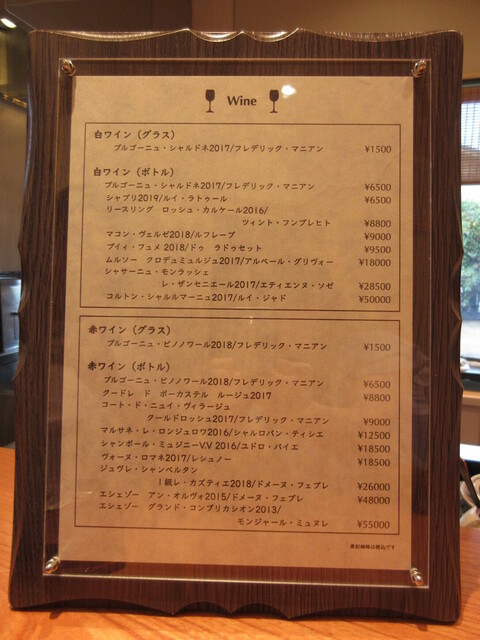 Wine
白ワイン（グラス）
ブルゴーニュ・シャルドネ2017/フレデリック・マニアン ¥1500
白ワイン（ボトル）
ブルゴーニュ・シャルドネ2017/フレデリック・マニアン ¥6500
シャブリ2019/ルイ・ラトゥール ¥6500
リースリング ロッシュ・カルケール2016/
ツィント・フンブレヒト ¥8800
マコン・ヴェルゼ2018/ルフレーブ ¥9000
プイィ・フュメ 2018/ドゥ ラドゥセット ¥9500
ムルソー クロデュミュルジュ2017/アルベール・グリヴォー ¥18000
シャサーニュ・モンラッシェ
レ・ザンセニエール2017/エティエンヌ・ソゼ ¥28500
コルトン・シャルルマーニュ2017/ルイ・ジャド ¥50000
赤ワイン（グラス）
ブルゴーニュ・ピノノワール2018/フレデリック・マニアン ¥1500
赤ワイン（ボトル）
ブルゴーニュ・ピノノワール2018/フレデリック・マニアン ¥6500
クードレ ド ボーカステル ルージュ2017 ¥8800
コート・ド・ニュイ・ヴィラージュ
クールドロッシュ2017/フレデリック・マニアン ¥9000
マルサネ・レ・ロンジュロワ2016/シャルロパン・ティシエ ¥12500
シャンボール・ミュジニーV.V 2016/ユドロ・バイエ ¥18500
ヴォーヌ・ロマネ2017/レシュノー ¥18500
ジュヴレ・シャンベルタン
1級レ・カズティエ2018/ドメーヌ・フェブレ ¥26000
エシェゾー アン・オルヴォ2015/ドメーヌ・フェブレ ¥48000
エシェゾー グランド・コンプリカシオン2013/
モンジャール・ミュヌレ ¥55000
表記価格は税込です